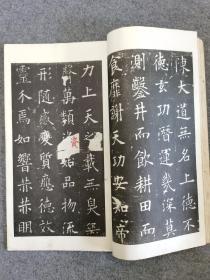 陳大道無名上德不
德玄功潛運幾深莫
測鑿井而飲耕田而
食靡謝天功安知帝
力上天之載無臭無
聲萬類資始品物流
形隨感變質應德效
靈介焉如響赫赫明